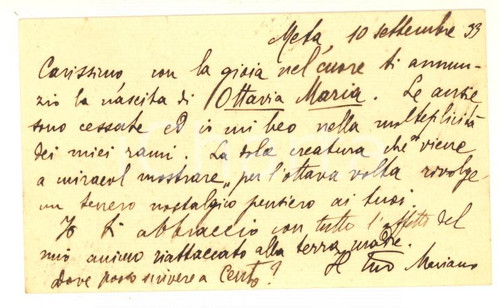 Meta, 10 settembre 33
Carissimo con la gioia nel cuore ti annun-
zio la nascita di Ottavia Maria. Le ansie
sono cessate ed io mi beo nella molteplicità
dei miei rami. La dolce creatura che "viene
a miracol mostrare" per l'ottava volta rivolge
un tenero nostalgico pensiero ai tuoi.
Io ti abbraccio con tutto l'affetto del
mio animo riattaccato alla terra madre.
Il tuo Mariano
Dove posso scrivere a Cento?